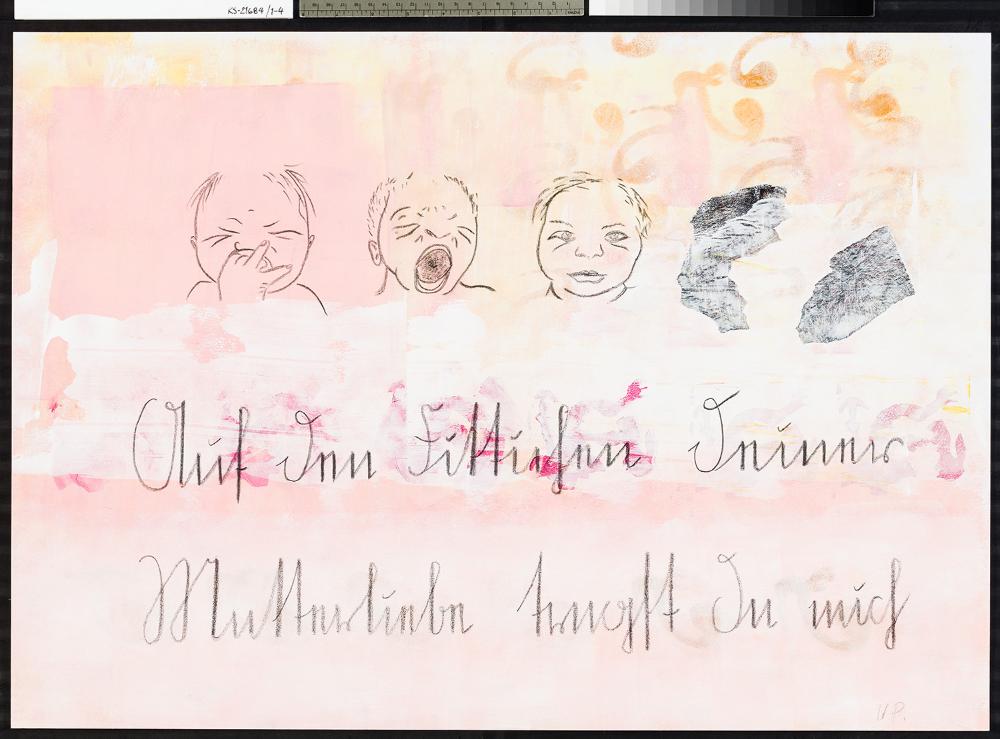 KS-21684/1-4
Auf den Fittichen Deiner
Mutterliebe trugst Du mich
H.P.